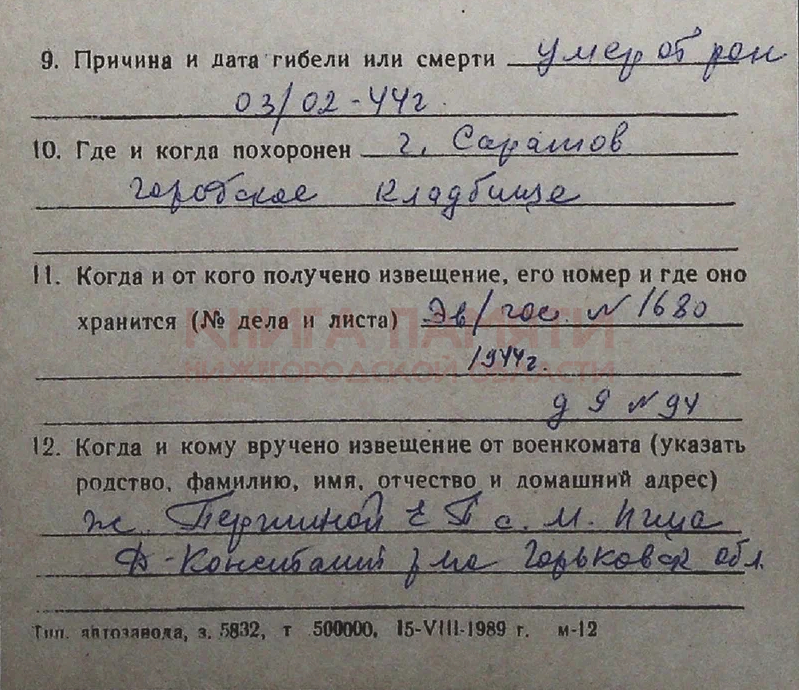 9. Причина и дата гибели или смерти умер от ран
03/02-44г.
10. Где и когда похоронен г. Саратов
городское кладбище
11. Когда и от кого получено извещение, его номер и где оно
хранится (№ дела и листа) Эв/гос. N 1680
1944г.
д 9 N 94
КНИГА ПАМЯТИ
НИЖЕГОРОДСКОЙ ОБЛАСТИ
12. Когда и кому вручено извещение от военкомата (указать
родство, фамилию, имя, отчество и домашний адрес)
ж. Е П с. М. Пица
Д-Константин р-на Горьковск обл.
Тип. автозавода, з. 5832, т 500000, 15-VIII-1989 г. м-12